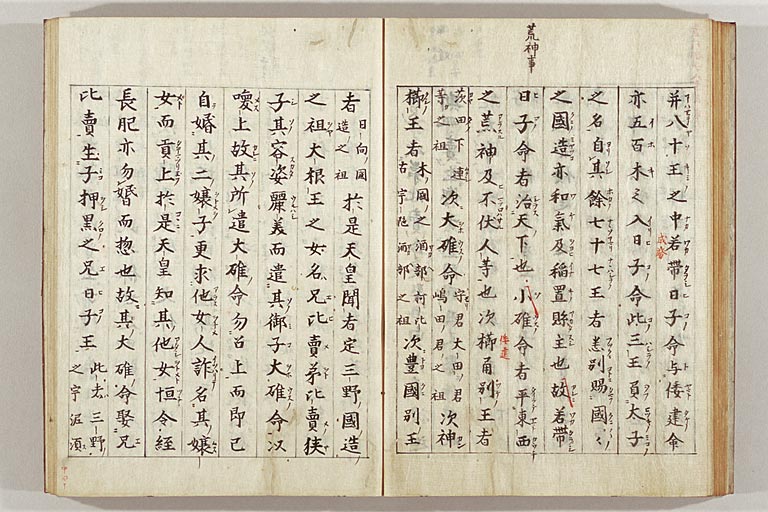 荒神事
并八十王之中若帶日子命与倭建命
亦五百木之入日子命此三王負太子
之名自其餘七十七王者悉別賜國〻
之國造亦和氣及稲置縣主也故若帶
日子命者治天下也小碓命者平東西
之荒神及不伏人等也次櫛角別王者
茨田下連
等之祖
次大碓命
守君大田君
嶋田君之祖
次神
櫛王者
木國之酒部
阿比
古宇陀酒部之祖
次豊國別王
者
日向國
造之祖
於是天皇聞者定三野國造
之祖大根王之女名兄比賣弟比賣
孃子其容姿麗美而遣其御子大碓命以
喚上故其所遣大碓命勿召上而即己
自婚其二孃子更求他女人詐名其孃
女而貢上於是天皇知其他女恒令経
長肥亦勿婚而惣也故其大碓命娶兄
比賣生子押黒之兄日子王
此者三野
之宇泥須